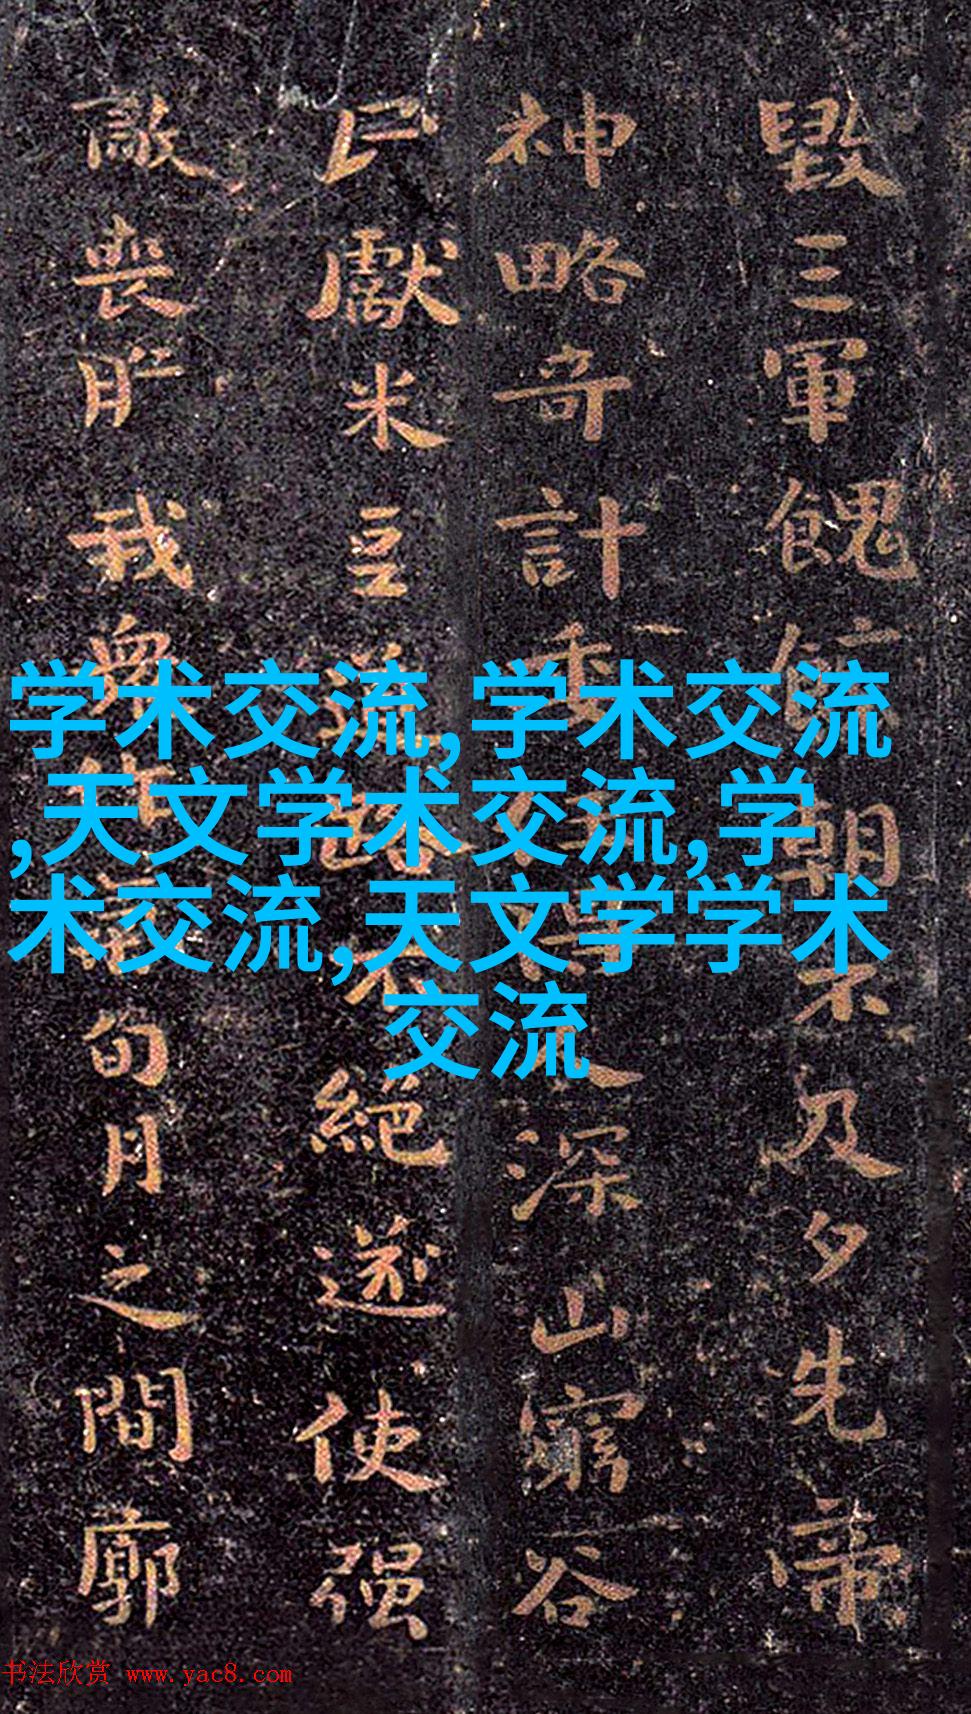 毀三軍餽朝不及夕先帝
神略奇計委深山窮谷
民獻米豆道路不絕遂使强
敵喪膽我衆作旬月之間廓
学术交流,学术交流
,天文学术交流,学
术交流,天文学学术
交流
书法欣赏 www.yac8.com